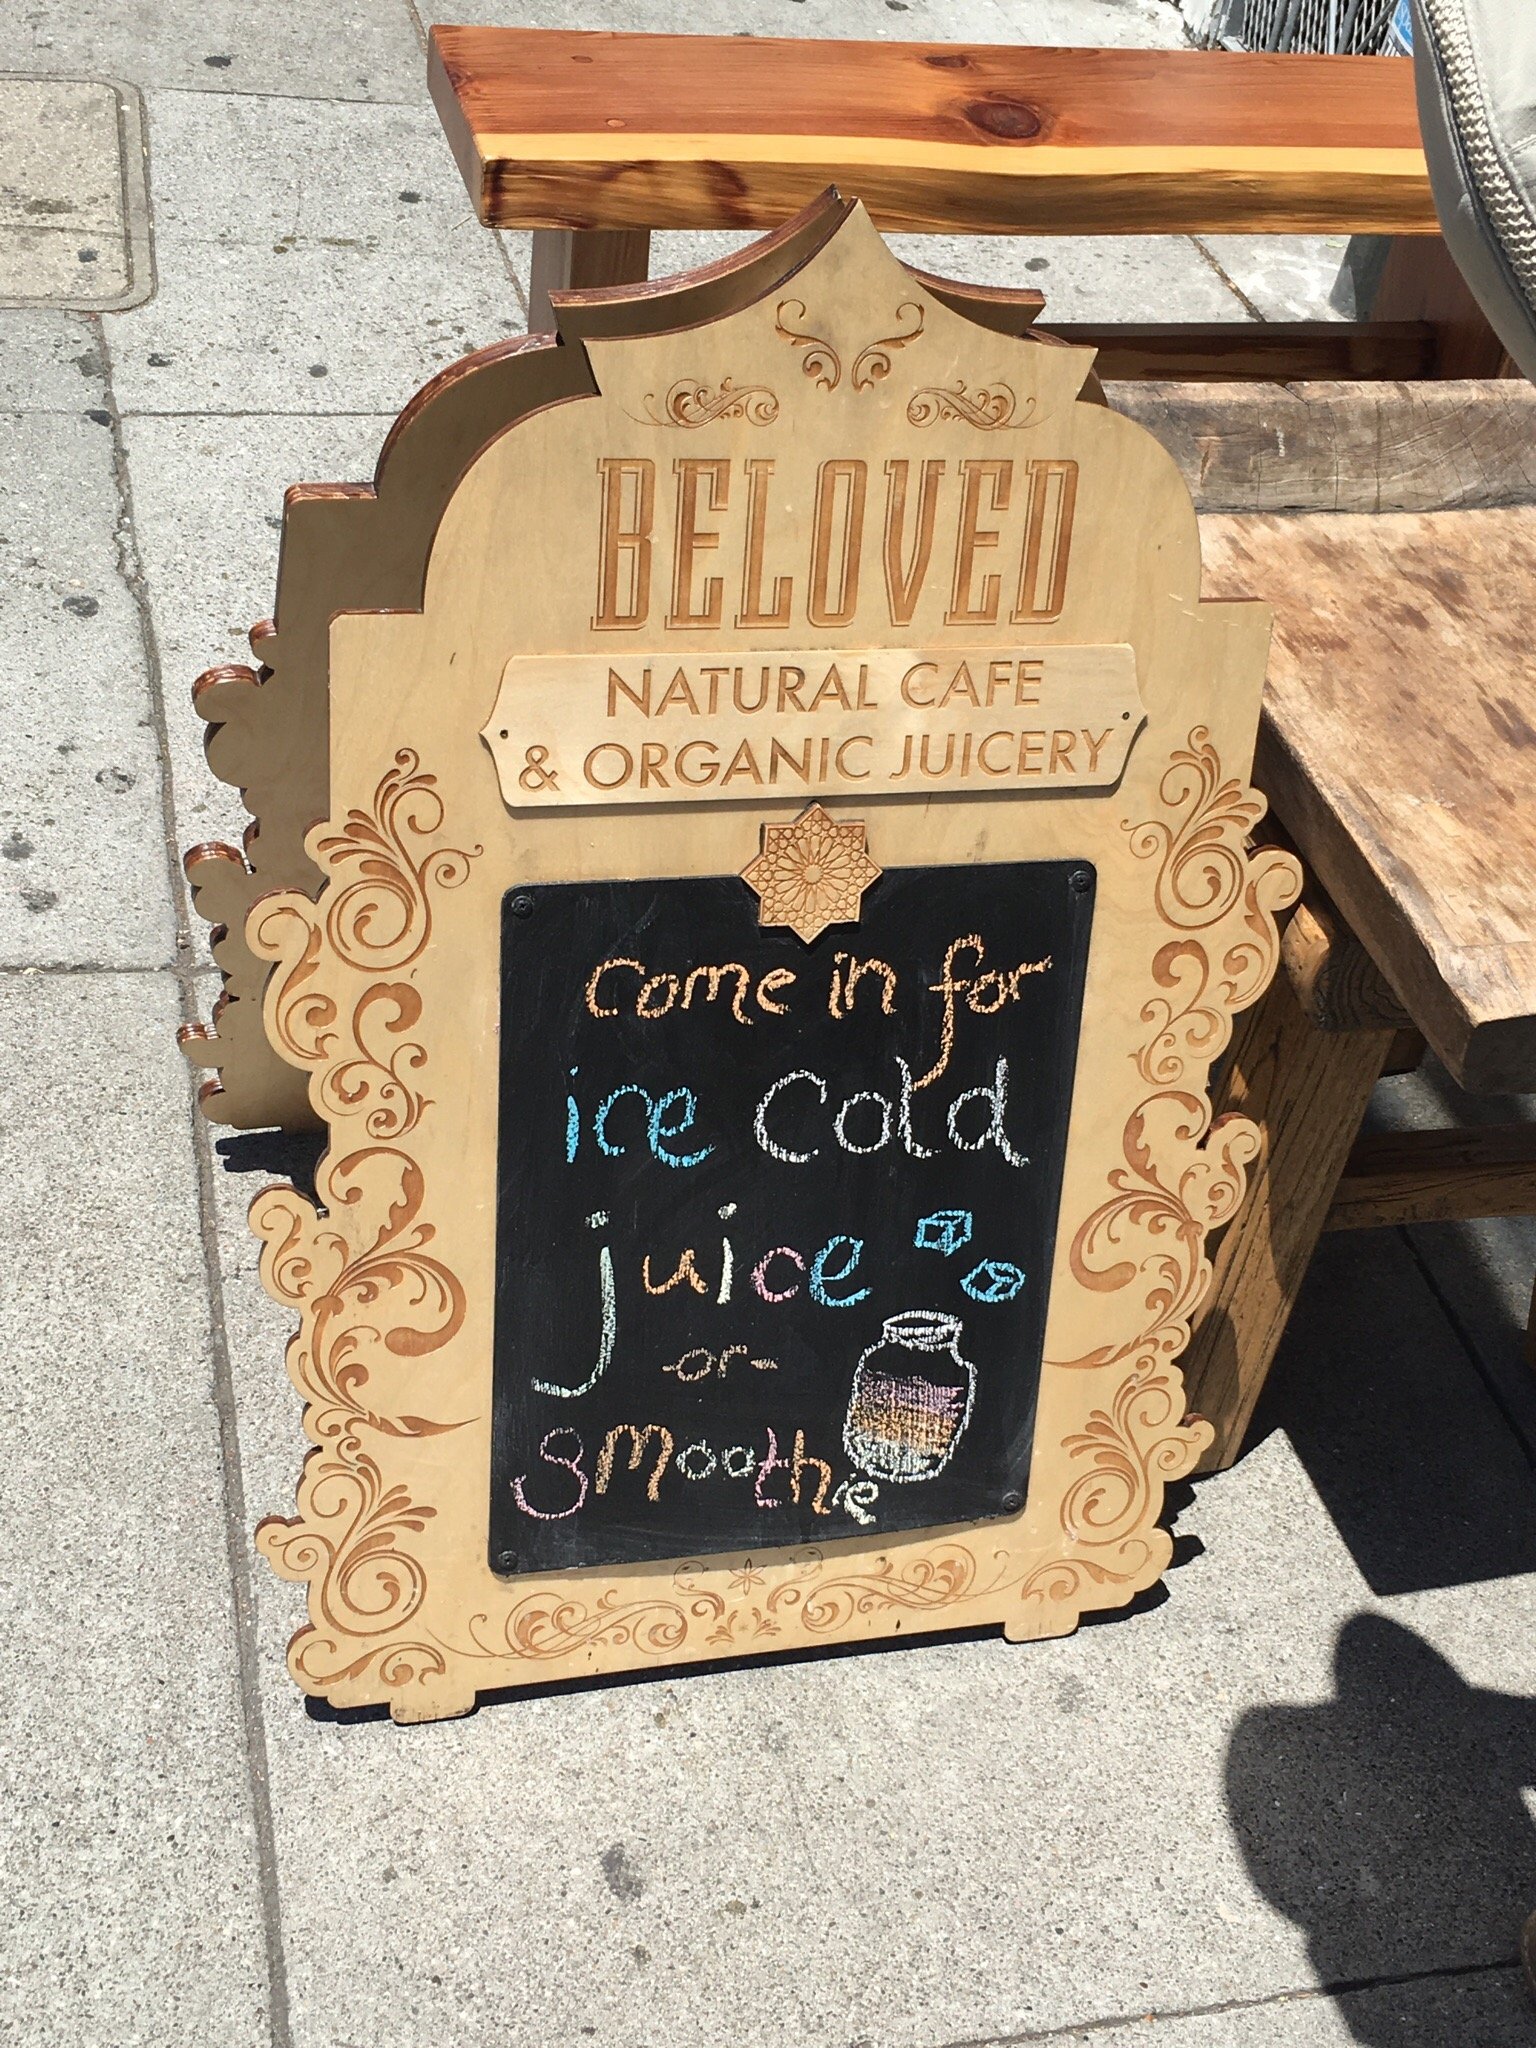 BELOVED
NATURAL CAFE
& ORGANIC JUICERY
come in for
ice cold
juice
-or-
smoothie